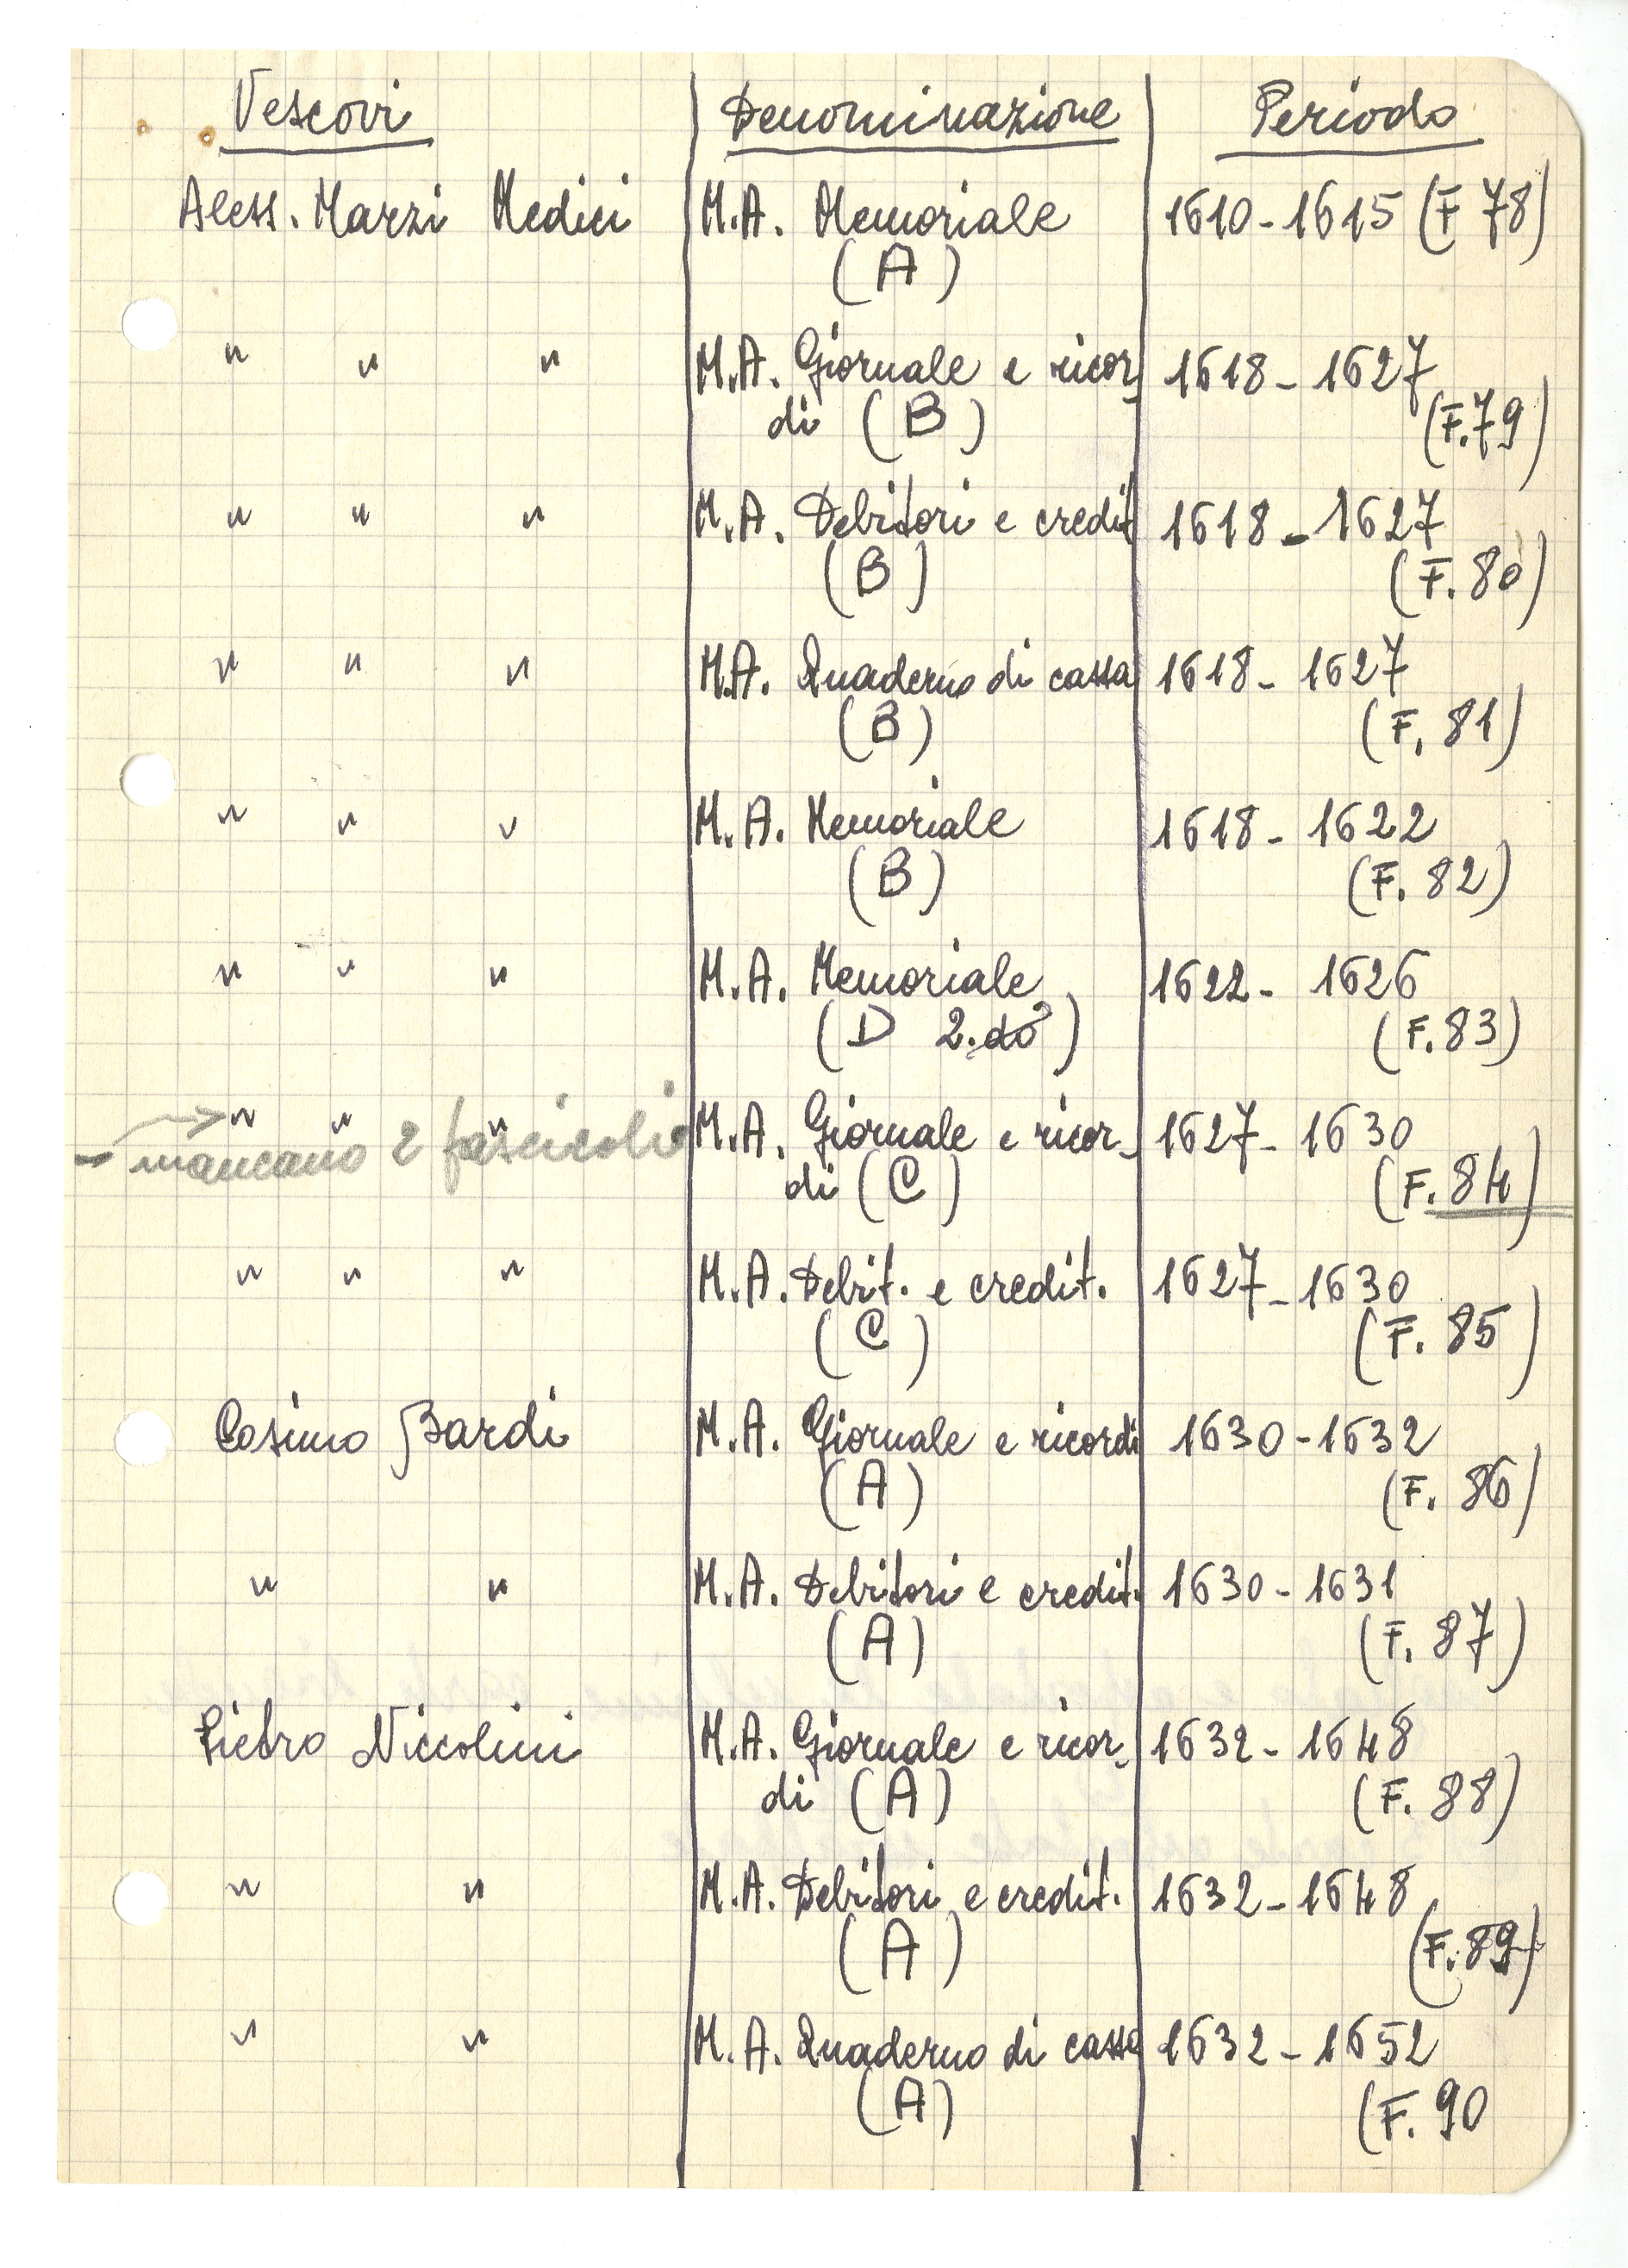 Vescovi Denominazione Periodo
Aless. Marzi Medici M.A. Memoriale 1610-1615 (F 78)
(A)
" " " M.A. Giornale e ricor- 1618-1627
di (B) (F.79)
" " " M.A. Debitori e credit 1618-1627
(B) (F. 80)
" " " M.A. Quaderno di cassa 1618-1627
(B) (F. 81)
" " " M.A. Memoriale 1618-1622
(B) (F. 82)
" " " M.A. Memoriale 1622-1626
(D 2.do) (F. 83)
" " " M.A. Giornale e ricor- 1627-1630
mancano 2 fascicoli di (C) (F. 84)
" " " M.A. Debit. e credit. 1627-1630
(C) (F. 85)
Cosimo Bardi M.A. Giornale e ricordi 1630-1632
(A) (F. 86)
" " M.A. Debitori e credit. 1630-1631
(A) (F. 87)
Pietro Niccolini M.A. Giornale e ricor- 1632-1648
di (A) (F. 88)
" " M.A. Debitori e credit. 1632-1648
(A) (F. 89)
" " M.A. Quaderno di cassa 1632-1652
(A) (F. 90